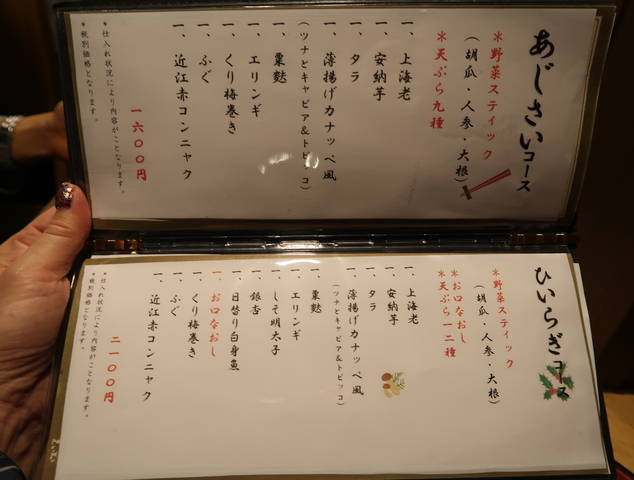 あじさいコース
＊野菜スティック
（胡瓜・人参・大根）
＊天ぷら九種
一、上海老
一、安納芋
一、タラ
一、薄揚げカナッペ風
（ツナとキャビア＆トビッコ）
一、粟麩
一、エリンギ
一、くり梅巻き
一、ふぐ
一、近江赤コンニャク
一六〇〇円
＊仕入れ状況により内容がことなります。
＊税別価格となります。
ひいらぎコース
＊野菜スティック
（胡瓜・人参・大根）
＊お口なおし
＊天ぷら一二種
一、上海老
一、安納芋
一、タラ
一、薄揚げカナッペ風
（ツナとキャビア＆トビッコ）
一、粟麩
一、エリンギ
一、しそ明太子
一、銀杏
一、日替り白身魚
一、お口なおし
一、くり梅巻き
一、ふぐ
一、近江赤コンニャク
二一〇〇円
＊仕入れ状況により内容がことなります。
＊税別価格となります。